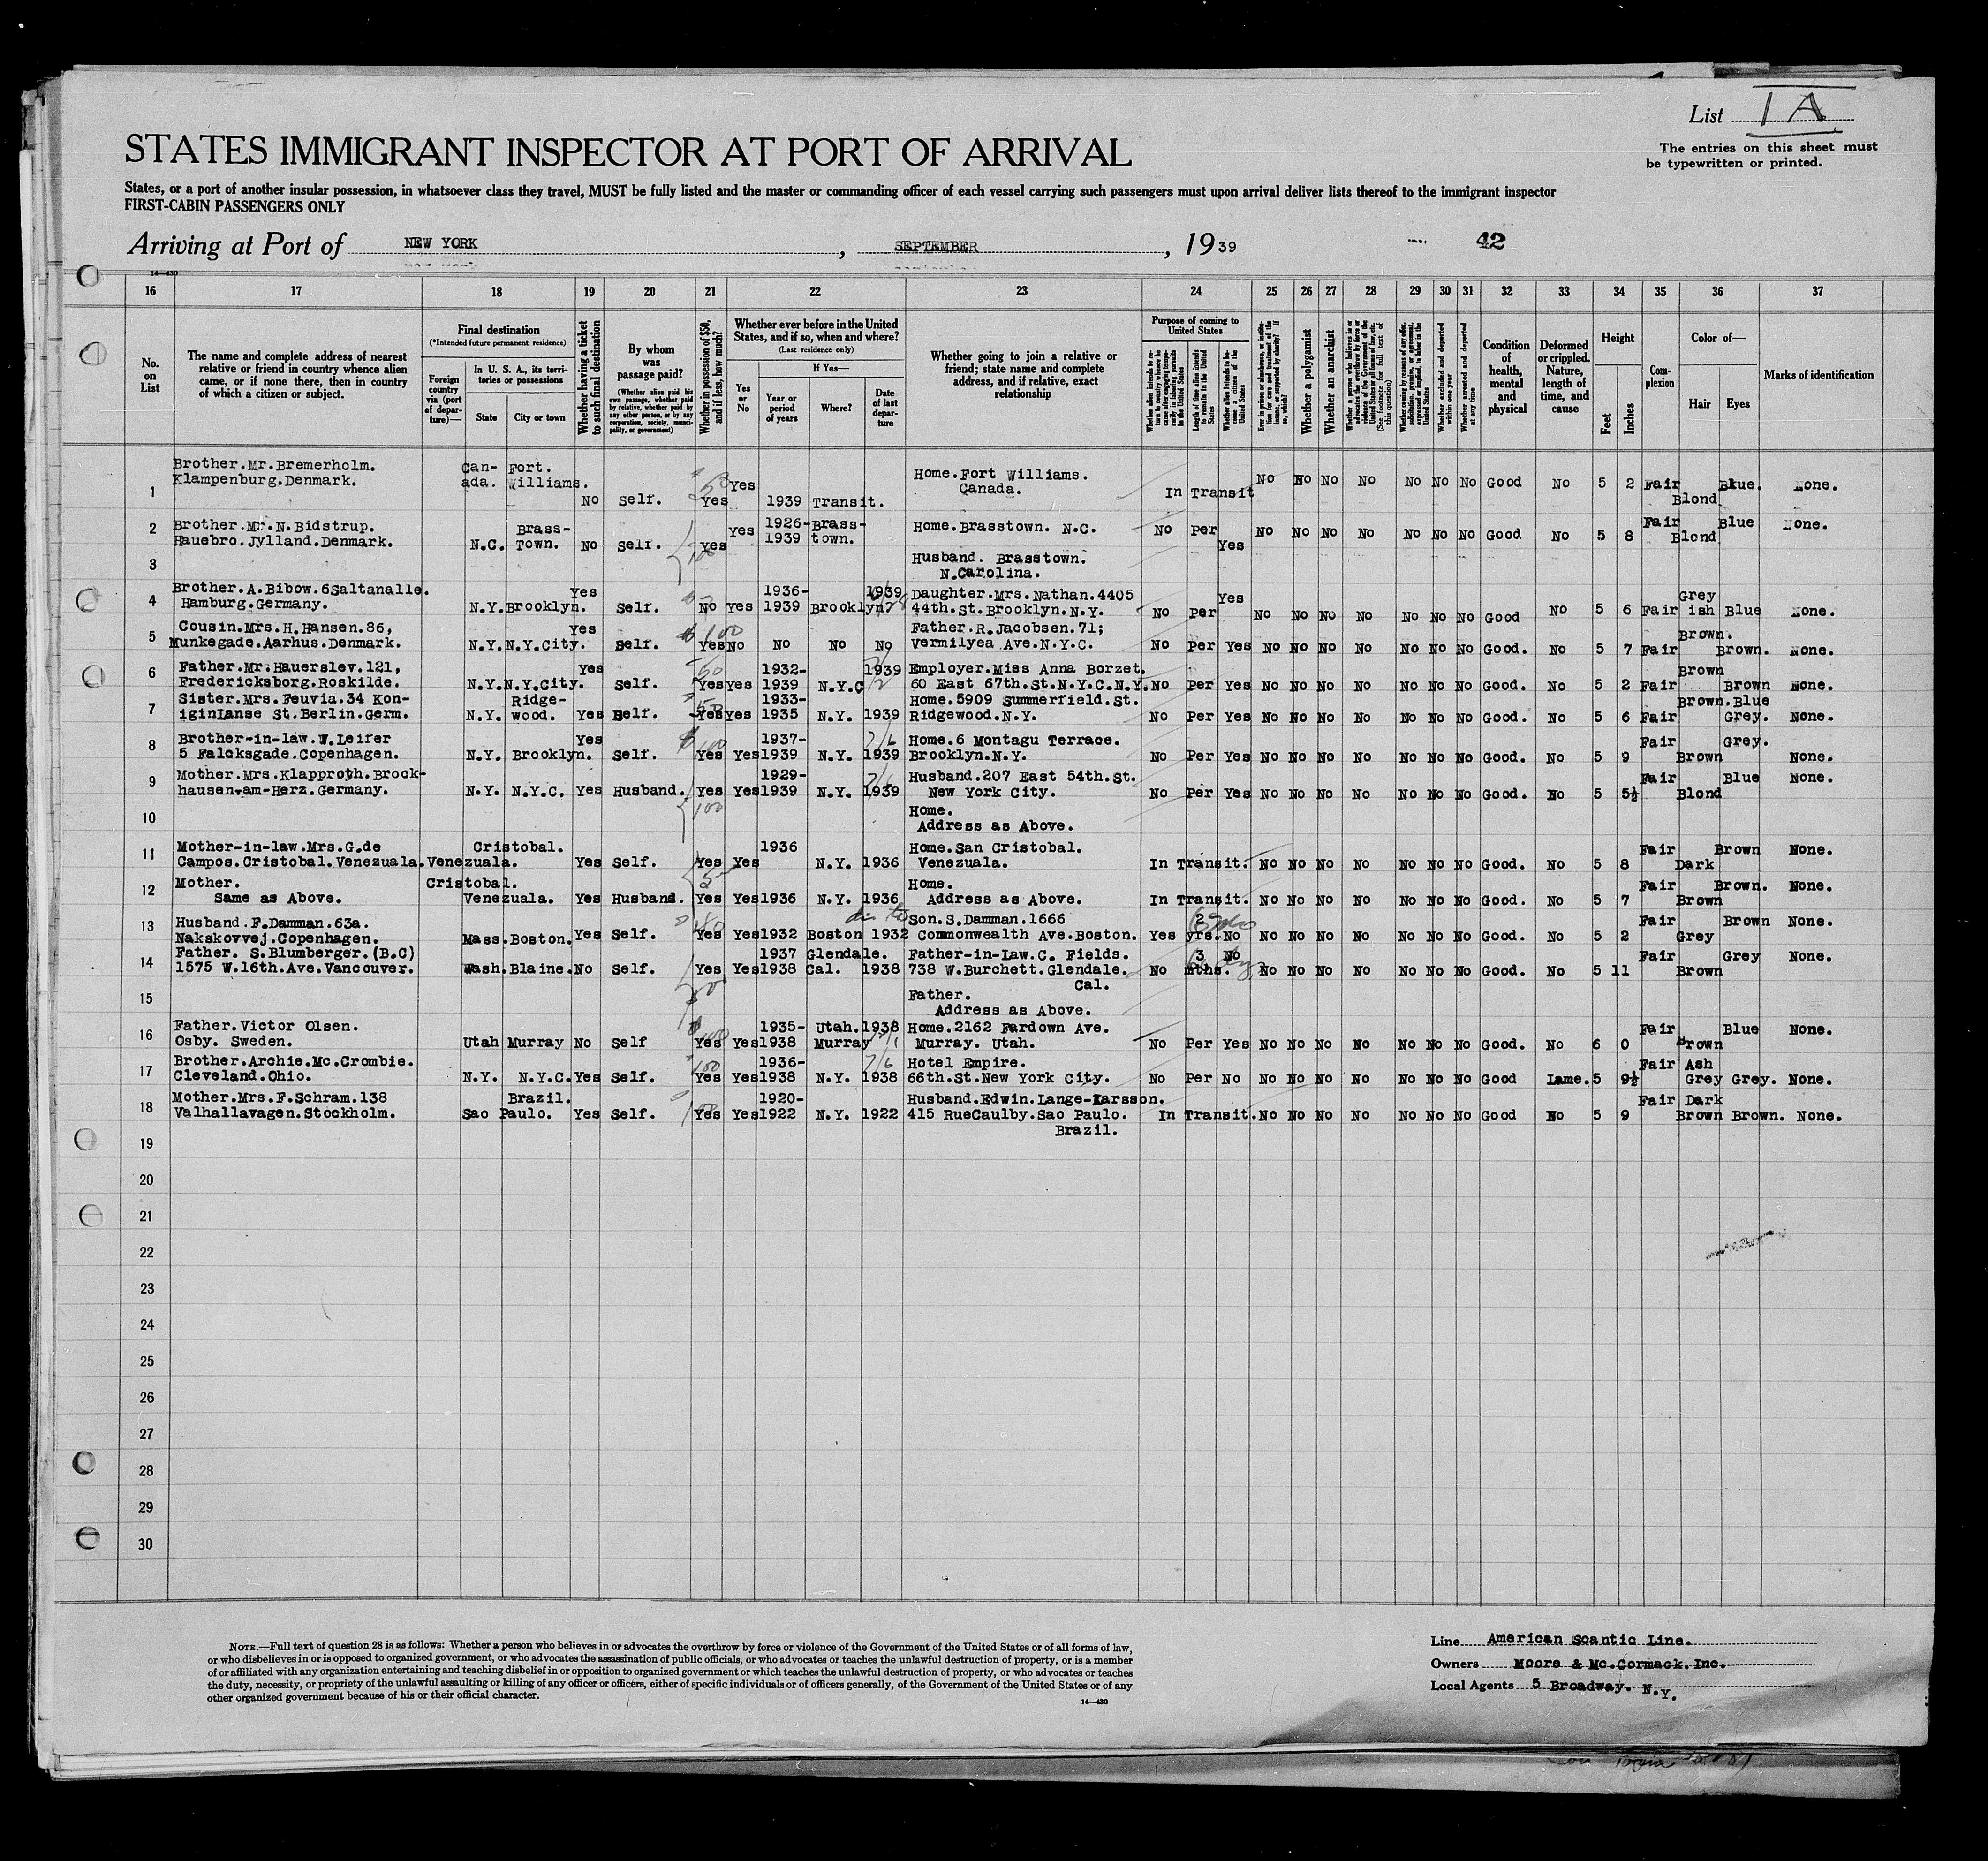 List 1A
The entries on this sheet must
be typewritten or printed.
STATES IMMIGRANT INSPECTOR AT PORT OF ARRIVAL
States, or a port of another insular possession, in whatsoever class they travel, MUST be fully listed and the master or commanding officer of each vessel carrying such passengers must upon arrival deliver lists thereof to the immigrant inspector
FIRST-CABIN PASSENGERS ONLY
Arriving at Port of NEW YORK, SEPTEMBER, 1939 42
14—430
16 17 18 19 20 21 22 23 24 25 26 27 28 29 30 31 32 33 34 35 36 37
No. on List
The name and complete address of nearest relative or friend in country whence alien came, or if none there, then in country of which a citizen or subject.
Final destination
(*Intended future permanent residence)
Foreign country via (port of departure)—
In U. S. A., its territories or possessions
State City or town
Whether having a ticket to such final destination
By whom was passage paid?
(Whether alien paid his own passage, whether paid by relative, whether paid by any other person, or by any corporation, society, municipality, or government)
Whether in possession of $50, and if less, how much?
Whether ever before in the United States, and if so, when and where?
(Last residence only)
Yes or No
If Yes—
Year or period of years Where? Date of last departure
Whether going to join a relative or friend; state name and complete address, and if relative, exact relationship
Purpose of coming to United States
Length of time alien intends to remain in the United States
Whether alien intends to become a citizen of the United States
Whether a polygamist
Whether an anarchist
(See footnote for full text of this question)
Whether excluded and deported within one year
Whether arrested and deported at any time
Condition of health, mental and physical
Deformed or crippled. Nature, length of time, and cause
Height
Feet Inches
Complexion
Color of—
Hair Eyes
Marks of identification
Brother.Mr.Bremerholm. Can- Fort. Home.Fort Williams.
1 Klampenburg.Denmark. ada. Williams. No Self. Yes Yes 1939 Transit. Canada. In Transit No No No No No No No Good No 5 2 Fair Blond Blue. None.
Brother.Mr.N.Bidstrup. Brass- 1926-Brass-
2 Hauebro.Jylland.Denmark. N.C. Town. No Self. Yes Yes 1939 town. Home.Brasstown. N.C. No Per Yes No No No No No No No Good No 5 8 Fair Blond Blue None.
3 Husband. Brasstown.
N.Carolina.
Brother.A.Bibow.6Saltanalle. Yes 1936- 1939 Daughter.Mrs.Nathan.4405 Yes Grey
4 Hamburg.Germany. N.Y. Brooklyn. Self. No Yes 1939 Brooklyn 44th.St.Brooklyn.N.Y. No Per No No No No No No No Good No 5 6 Fair ish Blue None.
Cousin.Mrs.H.Hansen.86, Yes $100 Father.R.Jacobsen.71; Brown.
5 Munkegade.Aarhus.Denmark. N.Y. N.Y.City. Self. Yes No No No No Vermilyea Ave.N.Y.C. No Per Yes No No No No No No No Good. No 5 7 Fair Brown. None.
Father.Mr.Hauerslev.121, Yes 50 1932- 1939 Employer.Miss Anna Borzet. Brown
6 Fredericksborg.Roskilde. N.Y. N.Y.City. Self. Yes Yes 1939 N.Y.C 60 East 67th.St.N.Y.C.N.Y. No Per Yes No No No No No No No Good. No 5 2 Fair Brown None.
Sister.Mrs.Feuvia.34 Kon- Ridge- 50 1933- Home.5909 Summerfield.St. Brown.Blue
7 iginLanse St.Berlin.Germ. N.Y. wood. Yes Self. Yes Yes 1935 N.Y. 1939 Ridgewood.N.Y. No Per Yes No No No No No No No Good. No 5 6 Fair Grey. None.
Brother-in-law.W.Leifer Yes $100 1937- 7/6 Home.6 Montagu Terrace. Fair Grey.
8 5 Falcksgade.Copenhagen. N.Y. Brooklyn. Self. Yes Yes 1939 N.Y. 1939 Brooklyn.N.Y. No Per Yes No No No No No No No Good. No 5 9 Brown None.
Mother.Mrs.Klapproth.Brock- 1929- Husband.207 East 54th.St. Fair Blue None.
9 hausen-am-Herz.Germany. N.Y. N.Y.C. Yes Husband. Yes Yes 1939 N.Y. 1939 New York City. No Per Yes No No No No No No No Good. No 5 5½ Blond
100
10 Home.
Address as Above.
Mother-in-law.Mrs.G.de Cristobal. 1936 Home.San Cristobal. Fair Brown None.
11 Campos.Cristobal.Venezuala.Venezuala. Yes Self. Yes Yes N.Y. 1936 Venezuala. In Transit. No No No No No No No Good. No 5 8 Dark
Mother. Cristobal. Home. Fair Brown. None.
12 Same as Above. Venezuala. Yes Husband. Yes Yes 1936 N.Y. 1936 Address as Above. In Transit. No No No No No No No Good. No 5 7 Brown
Husband.F.Damman.63a. Son.S.Damman.1666 2 Fair Brown None.
13 Nakskovvej.Copenhagen. Mass. Boston. Yes Self. Yes Yes 1932 Boston 1932 Commonwealth Ave.Boston. Yes yrs. No No No No No No No No Good. No 5 2 Grey
Father. S.Blumberger.(B.C) 1937 Glendale. Father-in-Law.C. Fields. 3 No Fair Grey None.
14 1575 W.16th.Ave.Vancouver. Wash. Blaine. No Self. Yes Yes 1938 Cal. 1938 738 W.Burchett.Glendale. No mths. No No No No No No No Good. No 5 11 Brown
Cal.
15 Father.
Address as Above.
Father.Victor Olsen. 1935- Utah. 1938 Home.2162 Fardown Ave. Fair Blue None.
16 Osby. Sweden. Utah Murray No Self Yes Yes 1938 Murray Murray. Utah. No Per Yes No No No No No No No Good. No 6 0 Brown
Brother.Archie.Mc.Crombie. 100 1936- 7/6 Hotel Empire. Fair Ash
17 Cleveland.Ohio. N.Y. N.Y.C. Yes Self. Yes Yes 1938 N.Y. 1938 66th.St.New York City. No Per No No No No No No No No Good Lame. 5 9½ Grey Grey. None.
Mother.Mrs.F.Schram.138 Brazil. 1920- Husband.Edwin.Lange-Karsson. Fair Dark
18 Valhallavagen.Stockholm. Sao Paulo. Yes Self. Yes Yes 1922 N.Y. 1922 415 RueCaulby.Sao Paulo. In Transit. No No No No No No No Good No 5 9 Brown Brown. None.
19 Brazil.
20
21
22
23
24
25
26
27
28
29
30
NOTE.—Full text of question 28 is as follows: Whether a person who believes in or advocates the overthrow by force or violence of the Government of the United States or of all forms of law,
or who disbelieves in or is opposed to organized government, or who advocates the assassination of public officials, or who advocates or teaches the unlawful destruction of property, or is a member
of or affiliated with any organization entertaining and teaching disbelief in or opposition to organized government or which teaches the unlawful destruction of property, or who advocates or teaches
the duty, necessity, or propriety of the unlawful assaulting or killing of any officer or officers, either of specific individuals or of officers generally, of the Government of the United States or of any
other organized government because of his or their official character.
14—430
Line American Scantic Line.
Owners Moore & Mc.Cormack.Inc.
Local Agents 5 Broadway. N.Y.